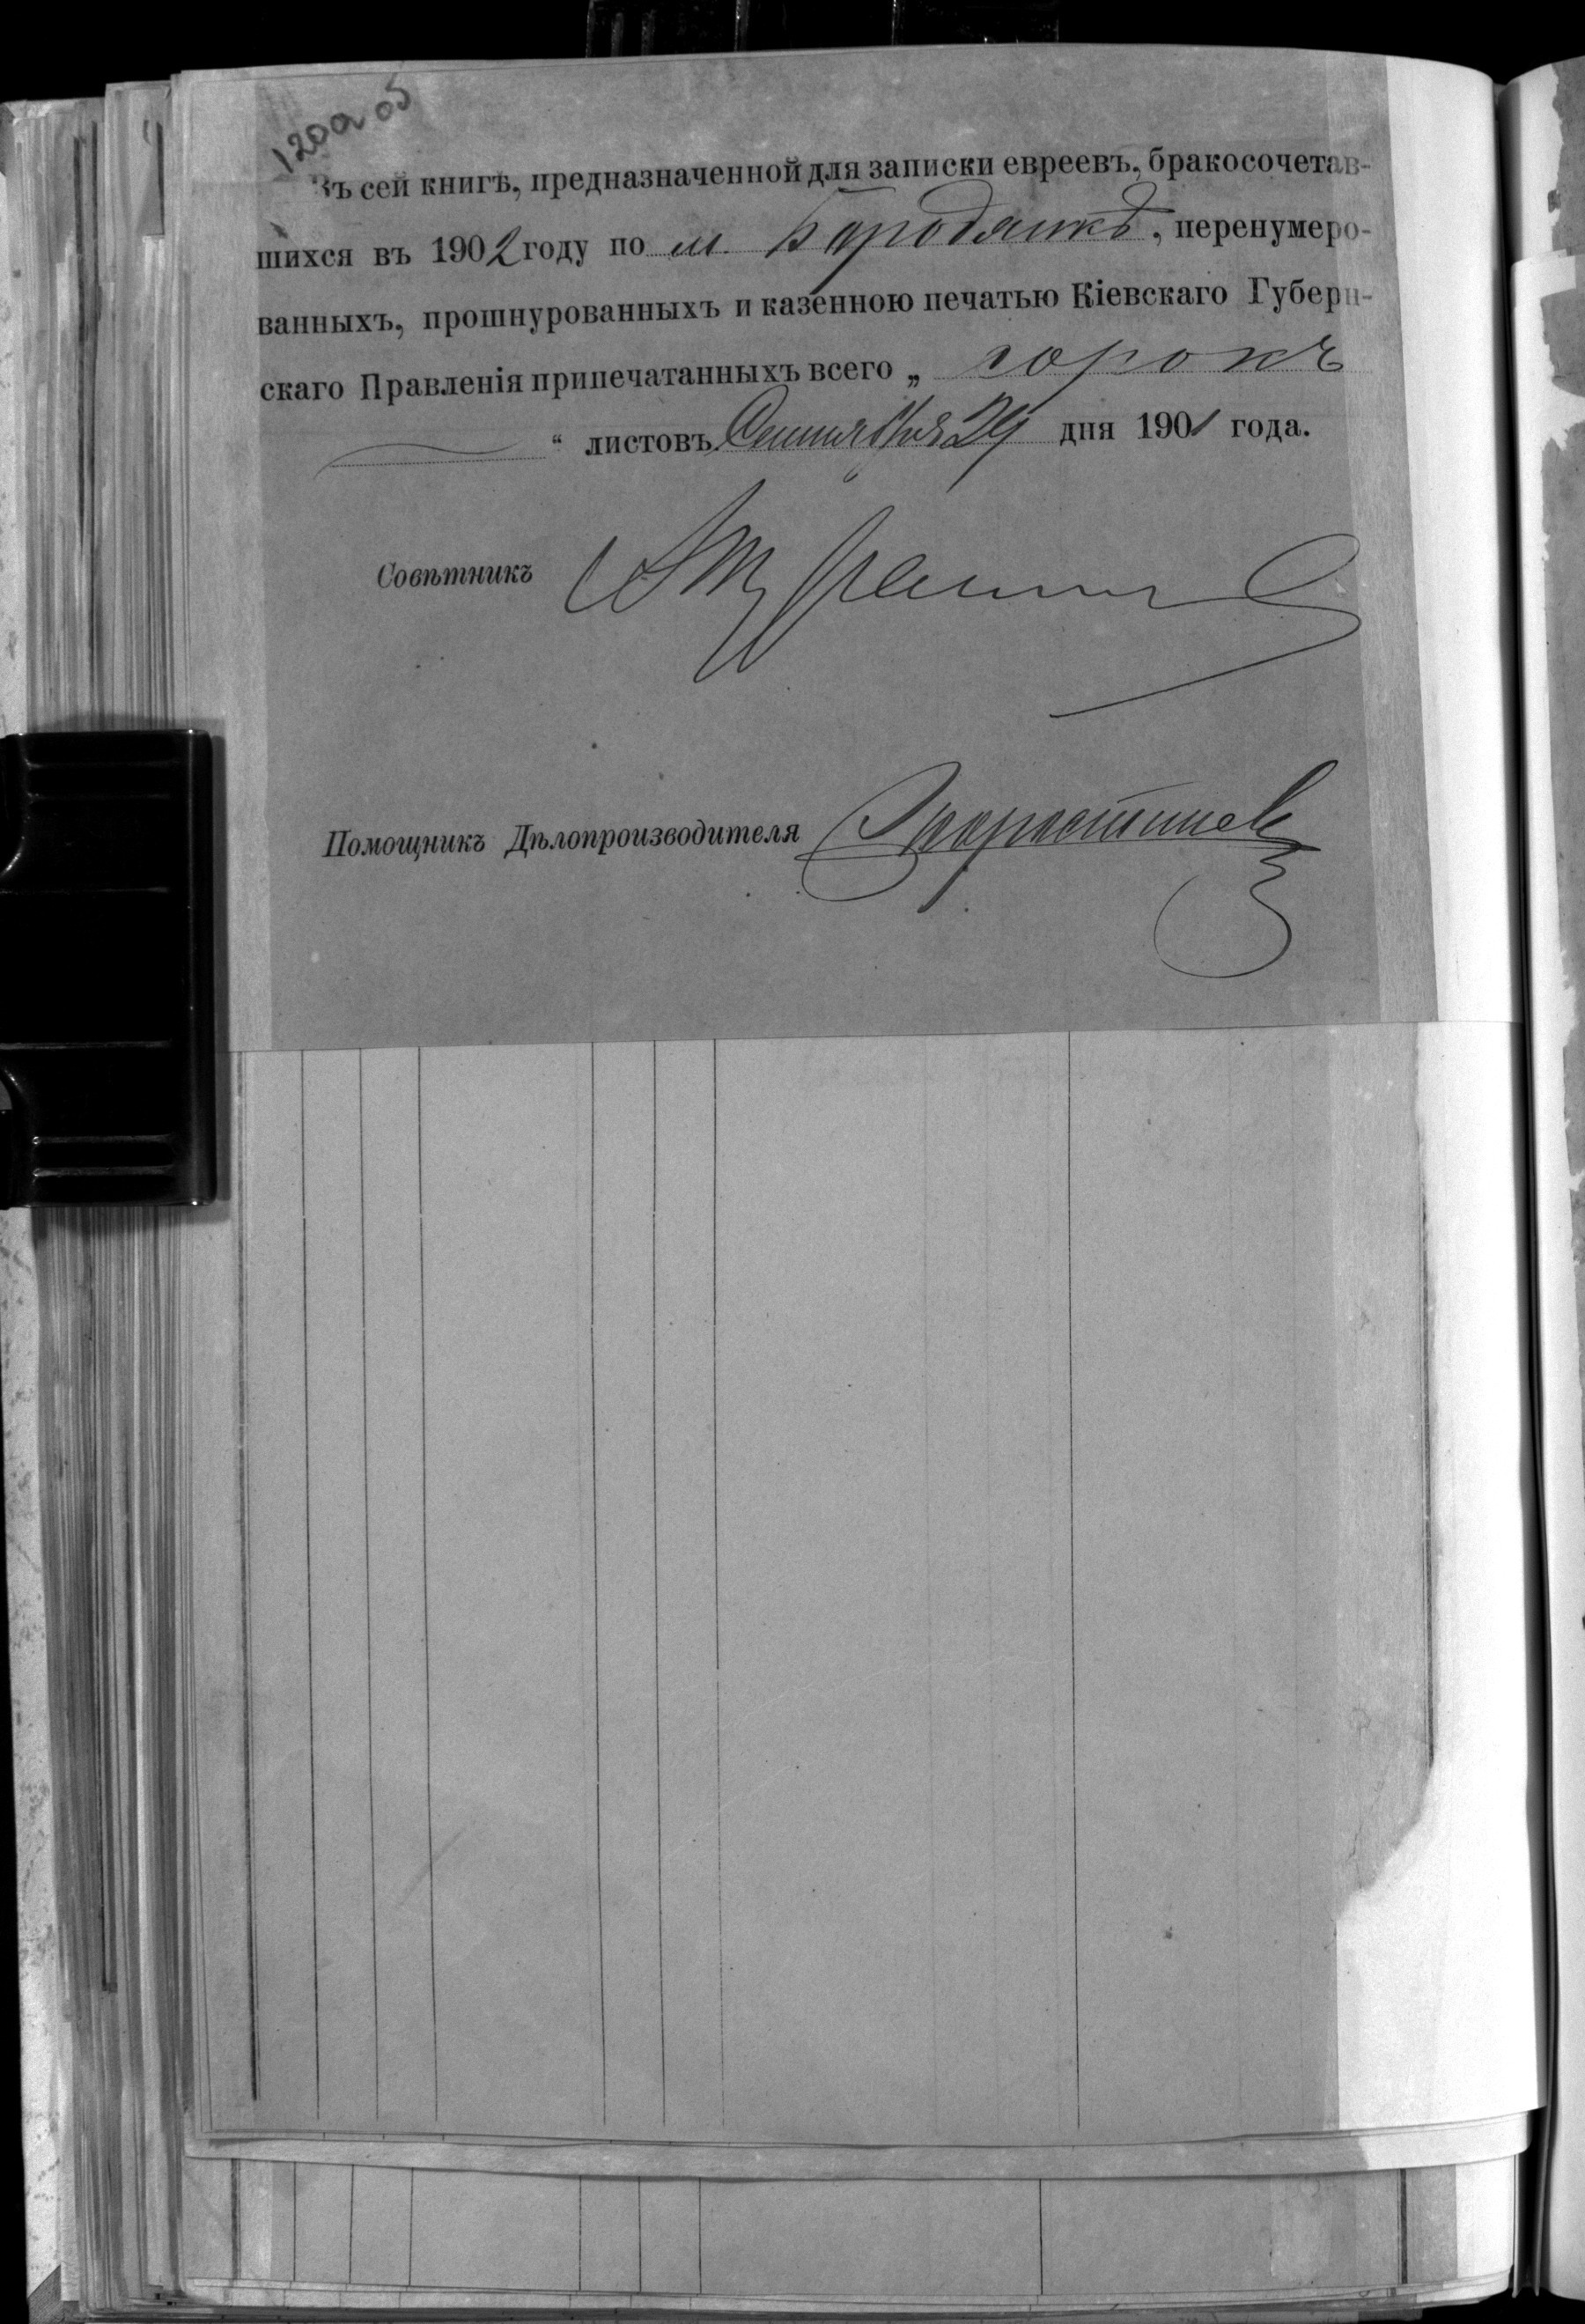 120а об
Въ сей книгѣ, предназначенной для записки евреевъ, бракосочетав-
шихся въ 1902 году по м. Бородянкѣ, перенумеро-
ванныхъ, прошнурованныхъ и казенною печатью Кіевскаго Губерн-
скаго Правленія припечатанныхъ всего „ сорокъ
“ листовъ. Сентября 29 дня 1901 года.
Совѣтникъ
Помощникъ Дѣлопроизводителя